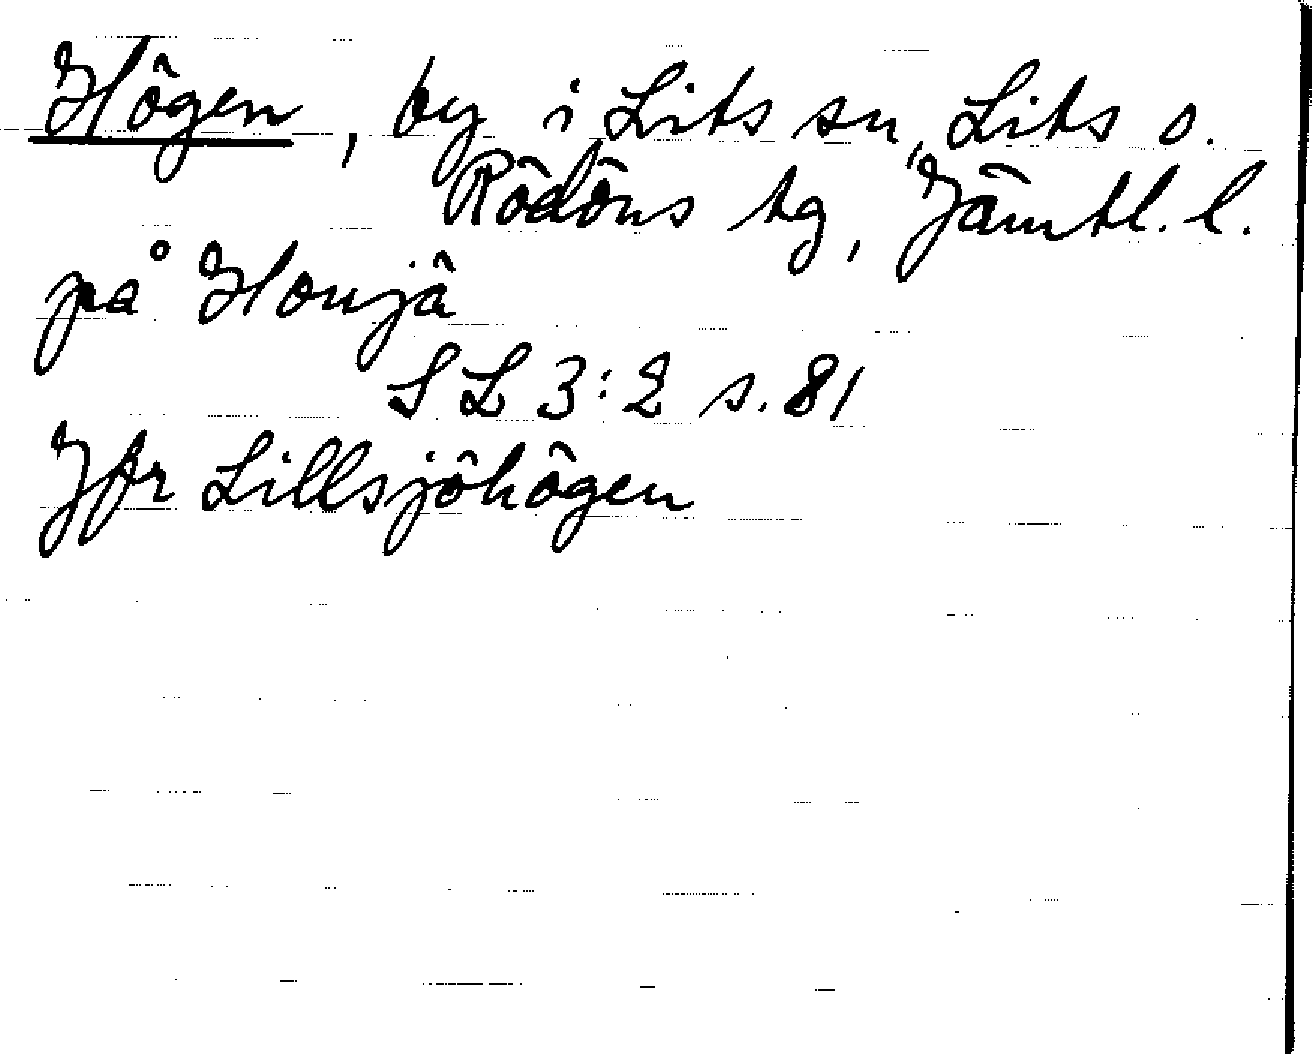 Högen, by i Lits sn, Lits o.
Rödöns tg, Jämtl. l.
på Houjä
SL 3:2 s. 81
Jfr Lillsjöhögen